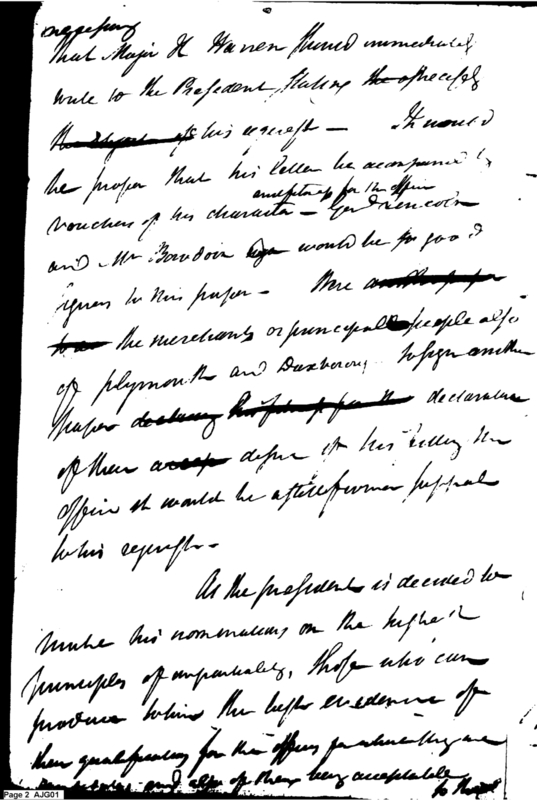 necessary
that Major H Warren should immediately
write to the President, stating the
his request — It would
be proper that his letter be accompanied by
and fitness for the office
vouchers of his character — Genl Lincoln
and Mr Bowdoin would be so good
signers to this paper — Were
the merchants or principal people also
of plymouth and Duxborough to sign another
paper declarative
of their desire of his filling the
office it would be a still firmer support
to his request —
As the president is decided to
make his nominations on the highest
principles of impartiality, those who can
produce to him the best evidence of
their qualifications for the offices for which they are
and also of their being acceptable
to the
Page 2 AJG01